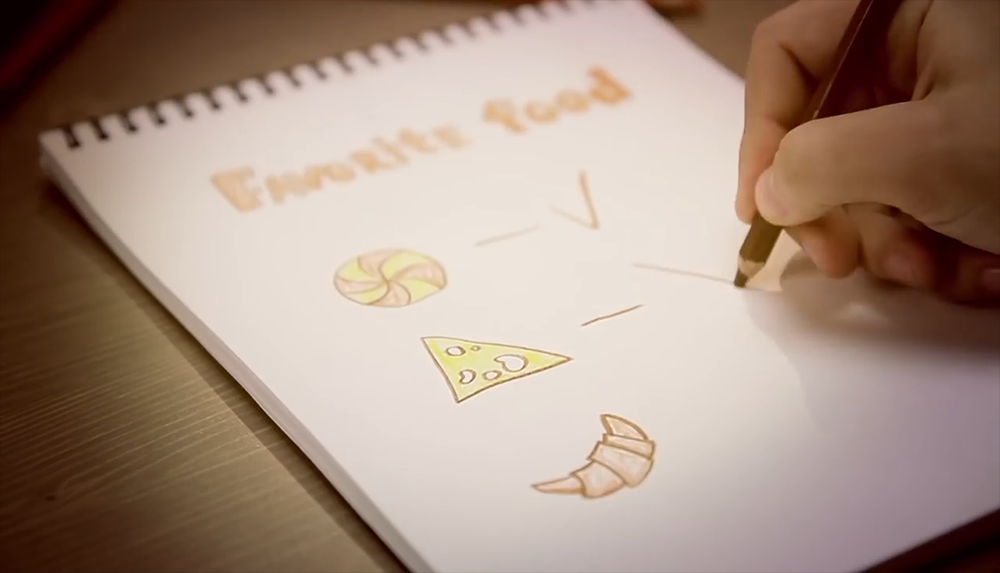 FAVORITE food